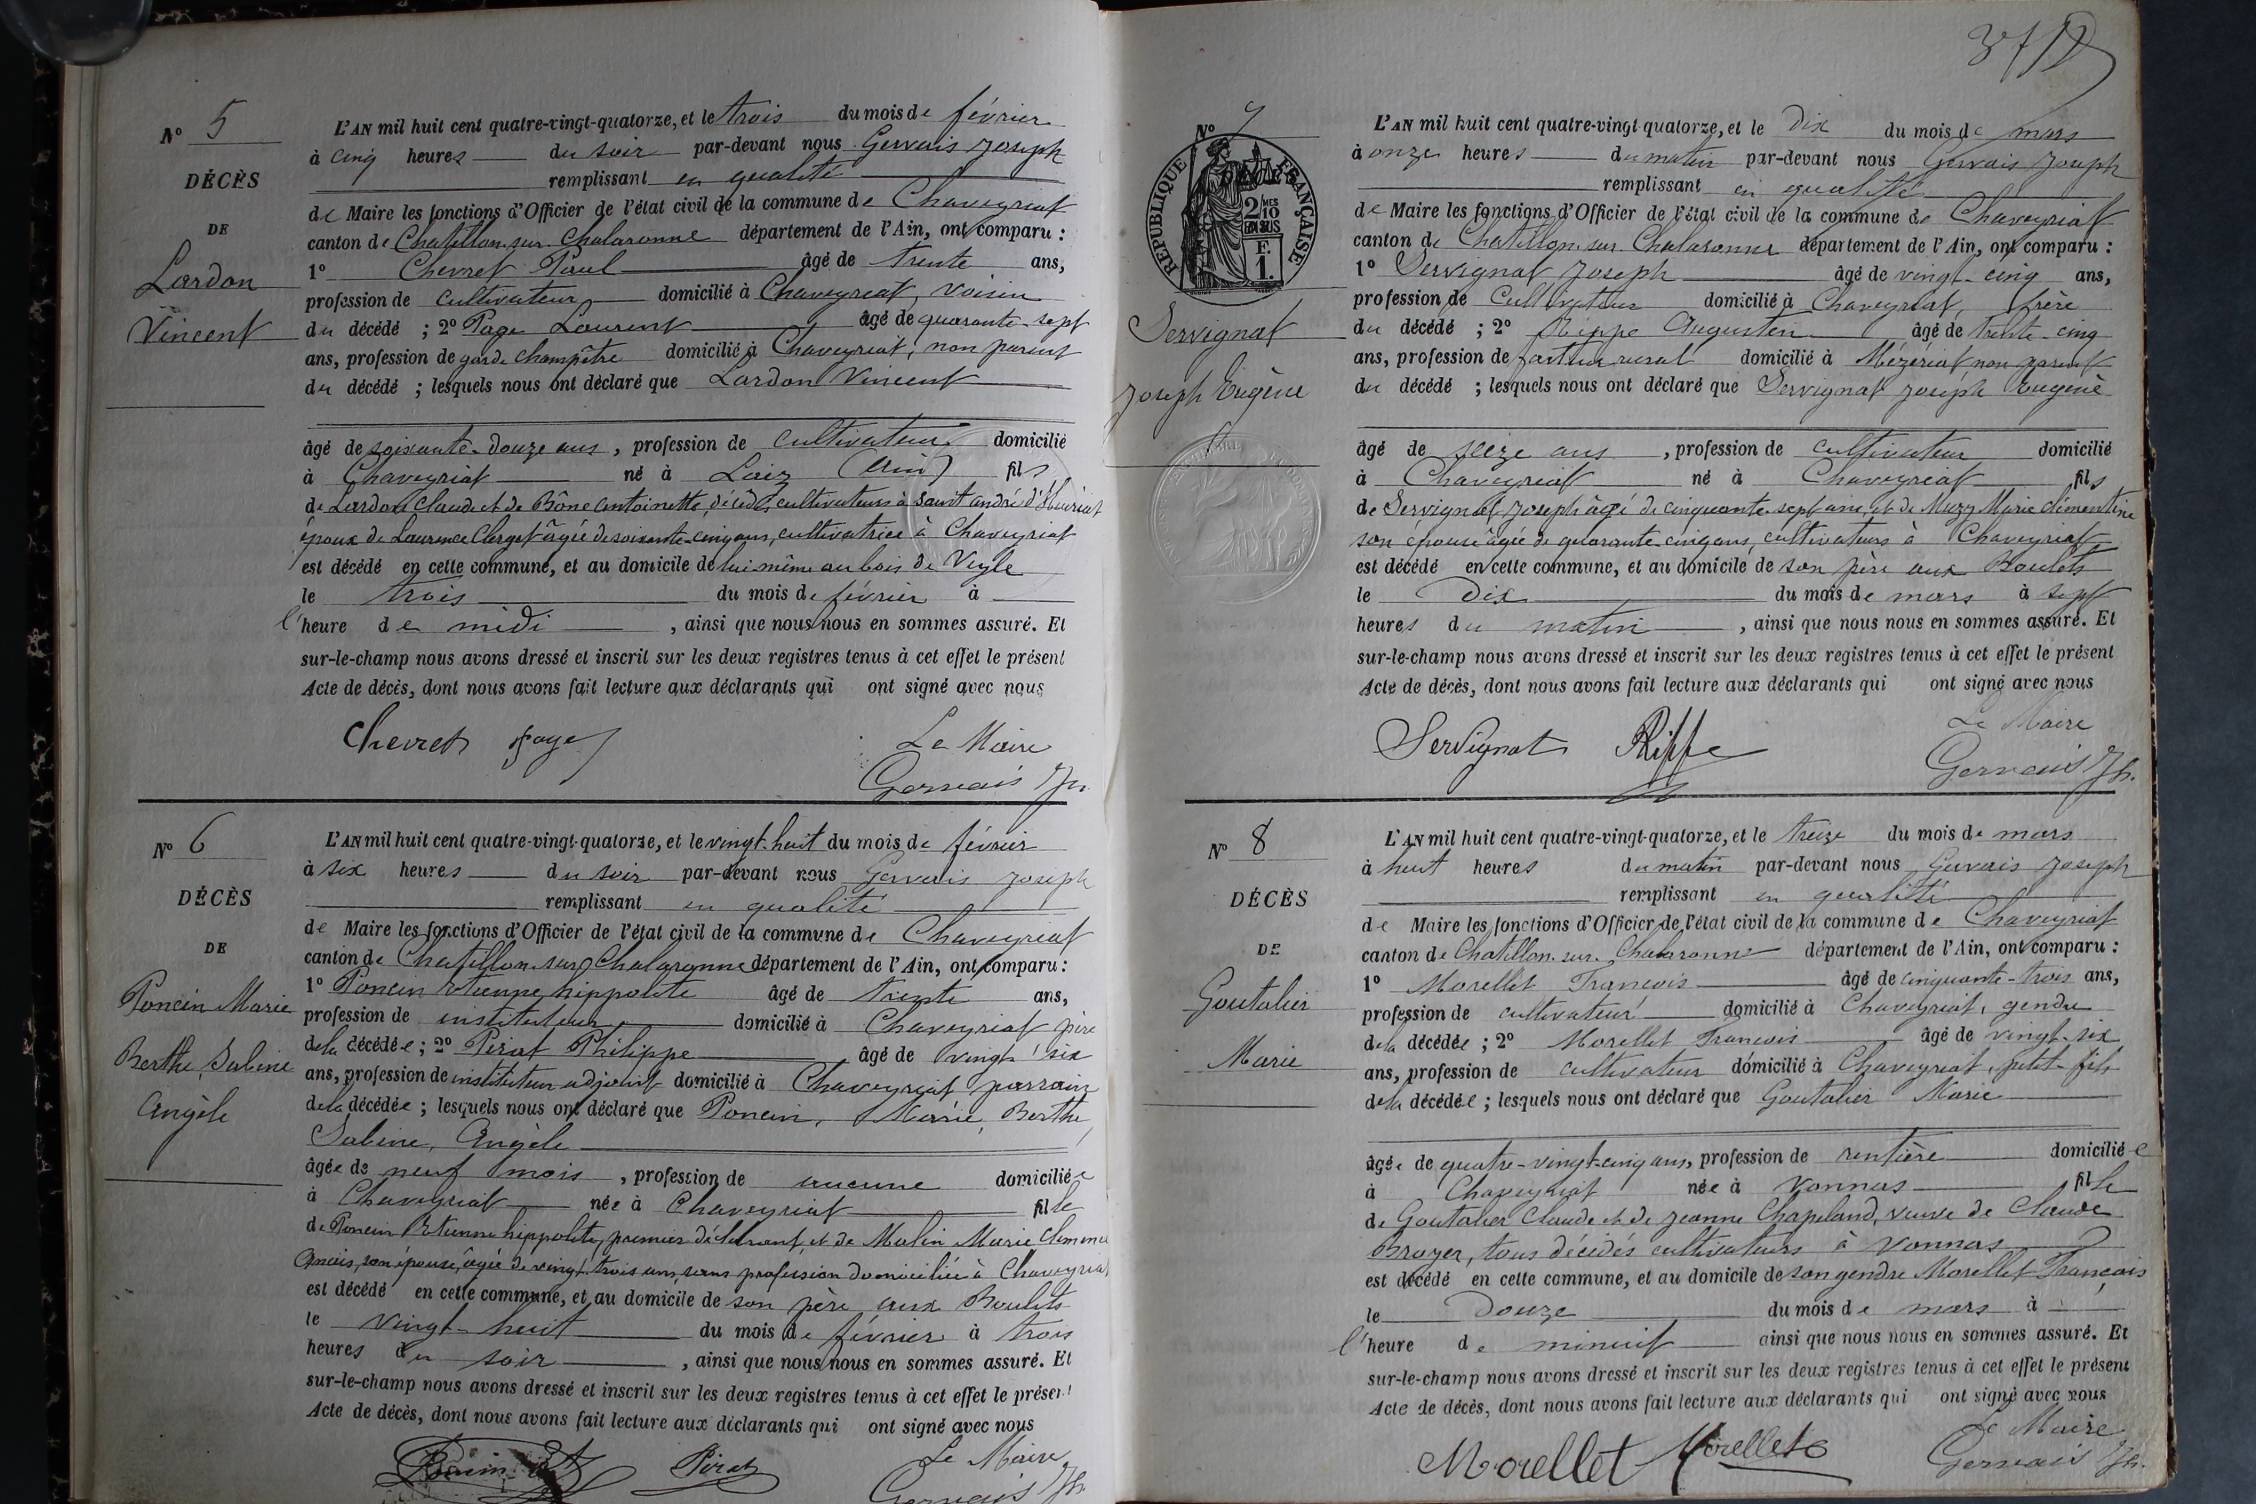 Nº 5
DÉCÈS
DE
Lardon
Vincent
L'AN mil huit cent quatre-vingt-quatorze, et le trois du mois de février
à cinq heures du soir par-devant nous Gervais Joseph
remplissant en qualité
de Maire les fonctions d'Officier de l'état civil de la commune de Chaveyriat
canton de Chatillon-sur-Chalaronne département de l'Ain, ont comparu :
1º Chevret Paul âgé de trente ans,
profession de cultivateur domicilié à Chaveyriat, voisin
du décédé ; 2º Page Laurent âgé de quarante-sept
ans, profession de garde champêtre domicilié à Chaveyriat, non parent
du décédé ; lesquels nous ont déclaré que Lardon Vincent
âgé de soixante-douze ans, profession de cultivateur domicilié
à Chaveyriat né à Laiz (Ain) fils
de Lardon Claude et de Bône Antoinette, décédés, cultivateurs à Saint andré d'Huiriat
époux de Laurence Clerget âgée de soixante-cinq ans, cultivatrice à Chaveyriat
est décédé en cette commune, et au domicile de lui-même au bois de Veyle
le trois du mois de février à
l'heure de midi, ainsi que nous nous en sommes assuré. Et
sur-le-champ nous avons dressé et inscrit sur les deux registres tenus à cet effet le présent
Acte de décès, dont nous avons fait lecture aux déclarants qui ont signé avec nous
Chevret Page Le Maire
Gervais Jh.
Nº 6
DÉCÈS
DE
Poncin Marie
Berthe, Sabine
Angèle
L'AN mil huit cent quatre-vingt-quatorze, et le vingt-huit du mois de février
à six heures du soir par-devant nous Gervais Joseph
remplissant en qualité
de Maire les fonctions d'Officier de l'état civil de la commune de Chaveyriat
canton de Chatillon-sur-Chalaronne département de l'Ain, ont comparu :
1º Poncin Etienne hippolite âgé de trente ans,
profession de instituteur domicilié à Chaveyriat père
de la décédée ; 2º Pirat Philippe âgé de vingt-six
ans, profession de instituteur adjoint domicilié à Chaveyriat parrain
de la décédée ; lesquels nous ont déclaré que Poncin, Marie, Berthe,
Sabine, Angèle
âgée de neuf mois, profession de aucune domiciliée
à Chaveyriat née à Chaveyriat fille
de Poncin Etienne hippolite, premier déclarant, et de Molin Marie Clémence
son épouse, âgée de vingt-trois ans, sans profession domiciliée à Chaveyriat
est décédé en cette commune, et au domicile de son père aux Boulets
le vingt-huit du mois de février à trois
heures du soir, ainsi que nous nous en sommes assuré. Et
sur-le-champ nous avons dressé et inscrit sur les deux registres tenus à cet effet le présent
Acte de décès, dont nous avons fait lecture aux déclarants qui ont signé avec nous
Poncin Et Pirat Le Maire
Gervais Jh.
Nº 7
RÉPUBLIQUE FRANÇAISE
2/10 MES
EN SUS
F.
1.
Servignat
Joseph Eugène
L'AN mil huit cent quatre-vingt-quatorze, et le dix du mois de mars
à onze heures du matin par-devant nous Gervais Joseph
remplissant en qualité
de Maire les fonctions d'Officier de l'état civil de la commune de Chaveyriat
canton de Chatillon-sur-Chalaronne département de l'Ain, ont comparu :
1º Servignat Joseph âgé de vingt-cinq ans,
profession de cultivateur domicilié à Chaveyriat, frère
du décédé ; 2º Rippe Augustin âgé de trente-cinq
ans, profession de facteur rural domicilié à Mézériat non parent
du décédé ; lesquels nous ont déclaré que Servignat Joseph Eugène
âgé de seize ans, profession de cultivateur domicilié
à Chaveyriat né à Chaveyriat fils
de Servignat Joseph âgé de cinquante-sept ans, et de Muzy Marie Clémentine
son épouse âgée de quarante-cinq ans, cultivateurs à Chaveyriat
est décédé en cette commune, et au domicile de son père aux Boulets
le dix du mois de mars à sept
heures du matin, ainsi que nous nous en sommes assuré. Et
sur-le-champ nous avons dressé et inscrit sur les deux registres tenus à cet effet le présent
Acte de décès, dont nous avons fait lecture aux déclarants qui ont signé avec nous
Servignat Rippe Le Maire
Gervais Jh.
Nº 8
DÉCÈS
DE
Goutalier
Marie
L'AN mil huit cent quatre-vingt-quatorze, et le treize du mois de mars
à huit heures du matin par-devant nous Gervais Joseph
remplissant en qualité
de Maire les fonctions d'Officier de l'état civil de la commune de Chaveyriat
canton de Chatillon-sur-Chalaronne département de l'Ain, ont comparu :
1º Morellet François âgé de cinquante-trois ans,
profession de cultivateur domicilié à Chaveyriat, gendre
de la décédée ; 2º Morellet François âgé de vingt-six
ans, profession de cultivateur domicilié à Chaveyriat, petit-fils
de la décédée ; lesquels nous ont déclaré que Goutalier Marie
âgée de quatre-vingt-cinq ans, profession de rentière domiciliée
à Chaveyriat née à Vonnas fille
de Goutalier Claude et de Jeanne Chapeland, veuve de Claude
Broyer, tous décédés cultivateurs à Vonnas
est décédé en cette commune, et au domicile de son gendre Morellet François
le douze du mois de mars à
l'heure de minuit ainsi que nous nous en sommes assuré. Et
sur-le-champ nous avons dressé et inscrit sur les deux registres tenus à cet effet le présent
Acte de décès, dont nous avons fait lecture aux déclarants qui ont signé avec nous
Morellet Morellet Le Maire
Gervais Jh.